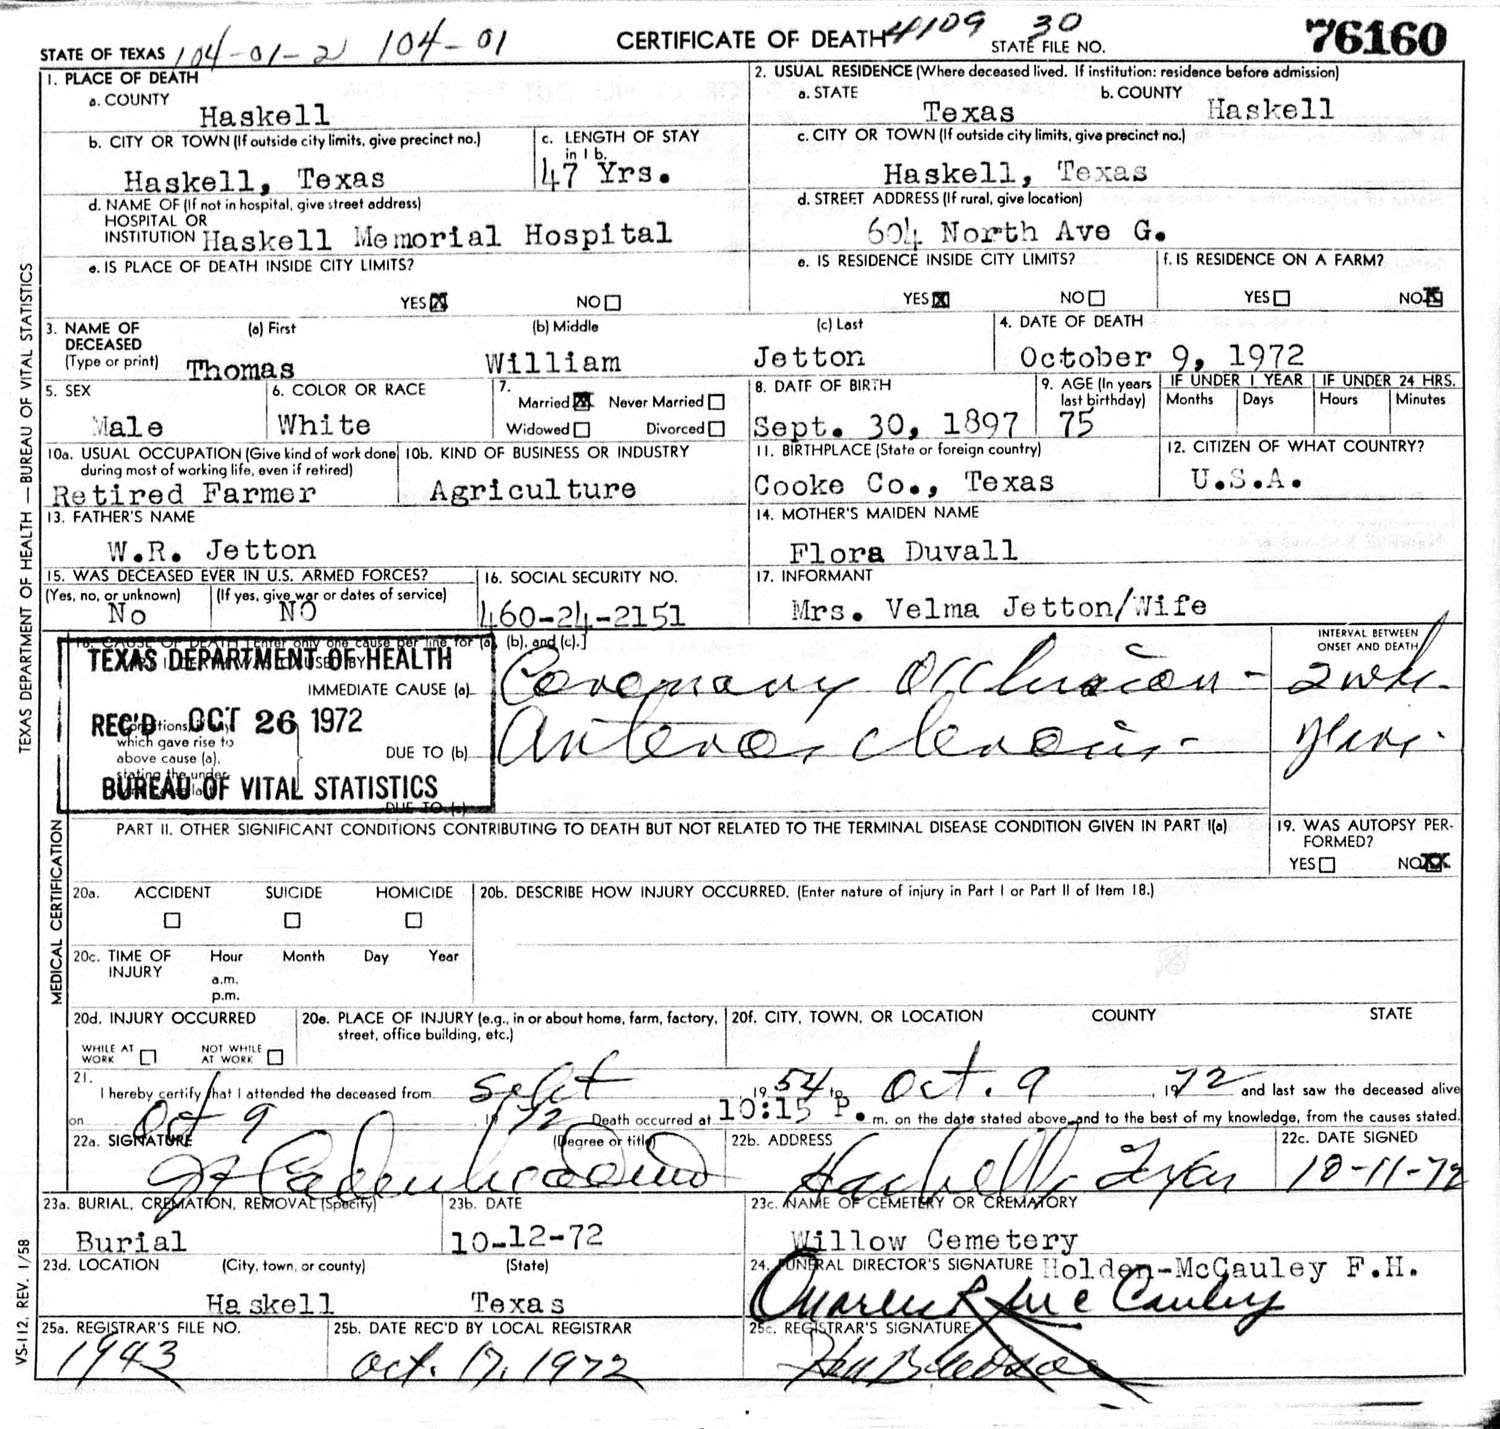 STATE OF TEXAS 104-01-2 104-01 CERTIFICATE OF DEATH 4109 30 STATE FILE NO. 76160
1. PLACE OF DEATH
a. COUNTY
Haskell
2. USUAL RESIDENCE (Where deceased lived. If institution: residence before admission)
a. STATE b. COUNTY
Texas Haskell
b. CITY OR TOWN (If outside city limits, give precinct no.)
Haskell, Texas
c. LENGTH OF STAY
in 1 b.
47 Yrs.
c. CITY OR TOWN (If outside city limits, give precinct no.)
Haskell, Texas
d. NAME OF (If not in hospital, give street address)
HOSPITAL OR
INSTITUTION Haskell Memorial Hospital
d. STREET ADDRESS (If rural, give location)
604 North Ave G.
e. IS PLACE OF DEATH INSIDE CITY LIMITS?
YES NO
e. IS RESIDENCE INSIDE CITY LIMITS?
YES NO
f. IS RESIDENCE ON A FARM?
YES NO
3. NAME OF
DECEASED
(Type or print)
(a) First (b) Middle (c) Last
Thomas William Jetton
4. DATE OF DEATH
October 9, 1972
5. SEX
Male
6. COLOR OR RACE
White
7.
Married Never Married
Widowed Divorced
8. DATE OF BIRTH
Sept. 30, 1897
9. AGE (In years
last birthday)
75
IF UNDER 1 YEAR IF UNDER 24 HRS.
Months Days Hours Minutes
10a. USUAL OCCUPATION (Give kind of work done
during most of working life, even if retired)
Retired Farmer
10b. KIND OF BUSINESS OR INDUSTRY
Agriculture
11. BIRTHPLACE (State or foreign country)
Cooke Co., Texas
12. CITIZEN OF WHAT COUNTRY?
U.S.A.
13. FATHER'S NAME
W.R. Jetton
14. MOTHER'S MAIDEN NAME
Flora Duvall
15. WAS DECEASED EVER IN U.S. ARMED FORCES?
(Yes, no, or unknown) (If yes, give war or dates of service)
No NO
16. SOCIAL SECURITY NO.
460-24-2151
17. INFORMANT
Mrs. Velma Jetton/Wife
18. CAUSE OF DEATH [Enter only one cause per line for (a), (b), and (c).]
TEXAS DEPARTMENT OF HEALTH
REC'D OCT 26 1972
BUREAU OF VITAL STATISTICS
INTERVAL BETWEEN
ONSET AND DEATH
IMMEDIATE CAUSE (a) Coronary Occlusion - 2 wks.
which gave rise to
above cause (a),
stating the under-
DUE TO (b) Arteriosclerosis - years.
DUE TO (c)
PART II. OTHER SIGNIFICANT CONDITIONS CONTRIBUTING TO DEATH BUT NOT RELATED TO THE TERMINAL DISEASE CONDITION GIVEN IN PART I(a)
19. WAS AUTOPSY PER-
FORMED?
YES NO
20a. ACCIDENT SUICIDE HOMICIDE
20b. DESCRIBE HOW INJURY OCCURRED. (Enter nature of injury in Part I or Part II of Item 18.)
20c. TIME OF
INJURY
Hour Month Day Year
a.m.
p.m.
20d. INJURY OCCURRED
WHILE AT
WORK
NOT WHILE
AT WORK
20e. PLACE OF INJURY (e.g., in or about home, farm, factory,
street, office building, etc.)
20f. CITY, TOWN, OR LOCATION COUNTY STATE
21.
I hereby certify that I attended the deceased from Sept 1954 to Oct. 9, 1972 and last saw the deceased alive
on Oct 9, 1972 Death occurred at 10:15 P. m. on the date stated above, and to the best of my knowledge, from the causes stated.
22a. SIGNATURE (Degree or title)
22b. ADDRESS
Haskell, Texas
22c. DATE SIGNED
10-11-72
23a. BURIAL, CREMATION, REMOVAL (Specify)
Burial
23b. DATE
10-12-72
23c. NAME OF CEMETERY OR CREMATORY
Willow Cemetery
23d. LOCATION (City, town, or county) (State)
Haskell Texas
24. FUNERAL DIRECTOR'S SIGNATURE Holden-McCauley F.H.
McCauley
25a. REGISTRAR'S FILE NO.
1943
25b. DATE REC'D BY LOCAL REGISTRAR
Oct. 17, 1972
25c. REGISTRAR'S SIGNATURE
TEXAS DEPARTMENT OF HEALTH — BUREAU OF VITAL STATISTICS
MEDICAL CERTIFICATION
VS-112, REV. 1/58